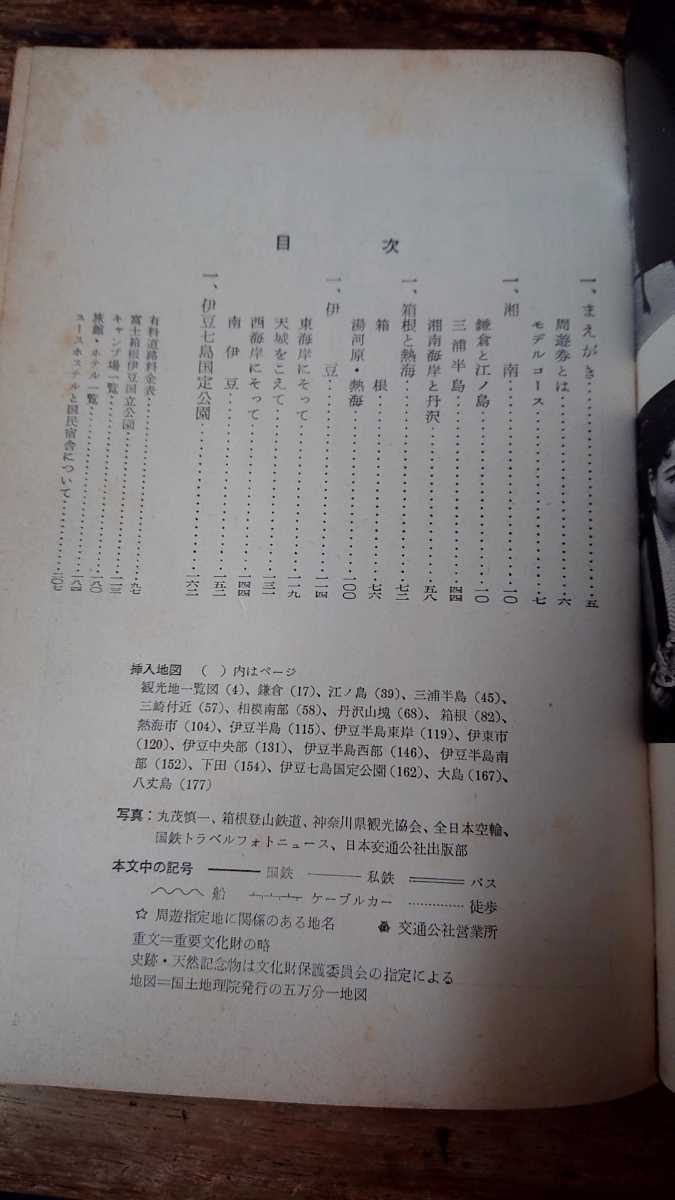 目次
一、まえがき…………五
周遊券とは…………六
モデルコース…………七
一、湘南…………一〇
鎌倉と江ノ島…………一〇
三浦半島…………四四
湘南海岸と丹沢…………五八
一、箱根と熱海…………七二
箱根…………七六
湯河原・熱海…………一〇〇
一、伊豆…………一一四
東海岸にそって…………一一九
天城をこえて…………一三一
西海岸にそって…………一四四
南伊豆…………一五二
一、伊豆七島国定公園…………一六二
有料道路料金表…………九七
富士箱根伊豆国立公園…………一一三
キャンプ場一覧…………一八〇
旅館・ホテル一覧…………一八四
ユースホステルと国民宿舎について…………二〇七
挿入地図 ( )内はページ
観光地一覧図(4)、鎌倉(17)、江ノ島(39)、三浦半島(45)、
三崎付近(57)、相模南部(58)、丹沢山塊(68)、箱根(82)、
熱海市(104)、伊豆半島(115)、伊豆半島東岸(119)、伊東市
(120)、伊豆中央部(131)、伊豆半島西部(146)、伊豆半島南
部(152)、下田(154)、伊豆七島国定公園(162)、大島(167)、
八丈島(177)
写真:丸茂慎一、箱根登山鉄道、神奈川県観光協会、全日本空輸、
国鉄トラベルフォトニュース、日本交通公社出版部
本文中の記号 国鉄 私鉄 バス
船 ケーブルカー 徒歩
☆ 周遊指定地に関係のある地名 交通公社営業所
重文=重要文化財の略
史跡・天然記念物は文化財保護委員会の指定による
地図=国土地理院発行の五万分一地図